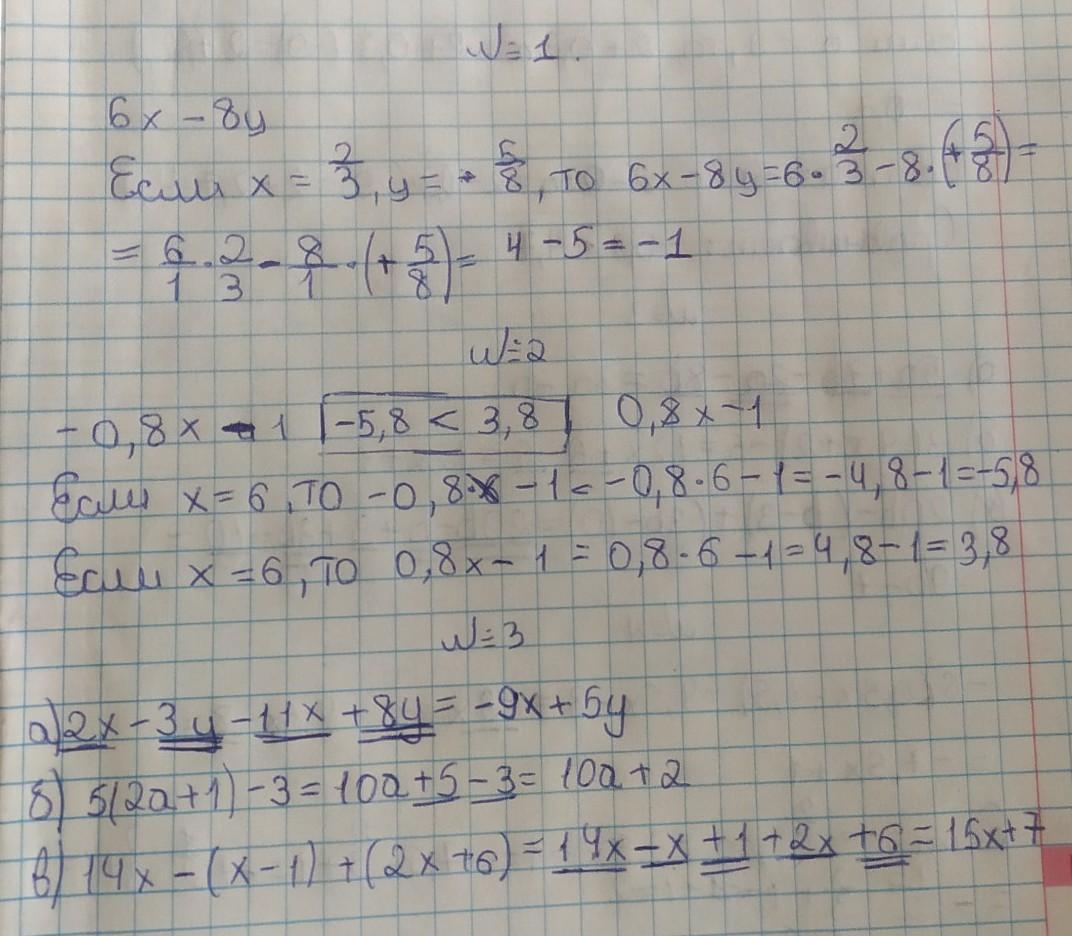 № 1.
6x - 8y
Если x = 2/3, y = + 5/8, то 6x - 8y = 6 · 2/3 - 8 · (+ 5/8) =
= 6/1 · 2/3 - 8/1 · (+ 5/8) = 4 - 5 = -1
№ 2
-0,8x - 1 -5,8 < 3,8 0,8x - 1
Если x = 6, то -0,8·x - 1 = -0,8·6 - 1 = -4,8 - 1 = -5,8
Если x = 6, то 0,8x - 1 = 0,8·6 - 1 = 4,8 - 1 = 3,8
№ 3
а) 2x - 3y - 11x + 8y = -9x + 5y
б) 5(2a+1) - 3 = 10a + 5 - 3 = 10a + 2
в) 14x - (x-1) + (2x+6) = 14x - x + 1 + 2x + 6 = 15x + 7